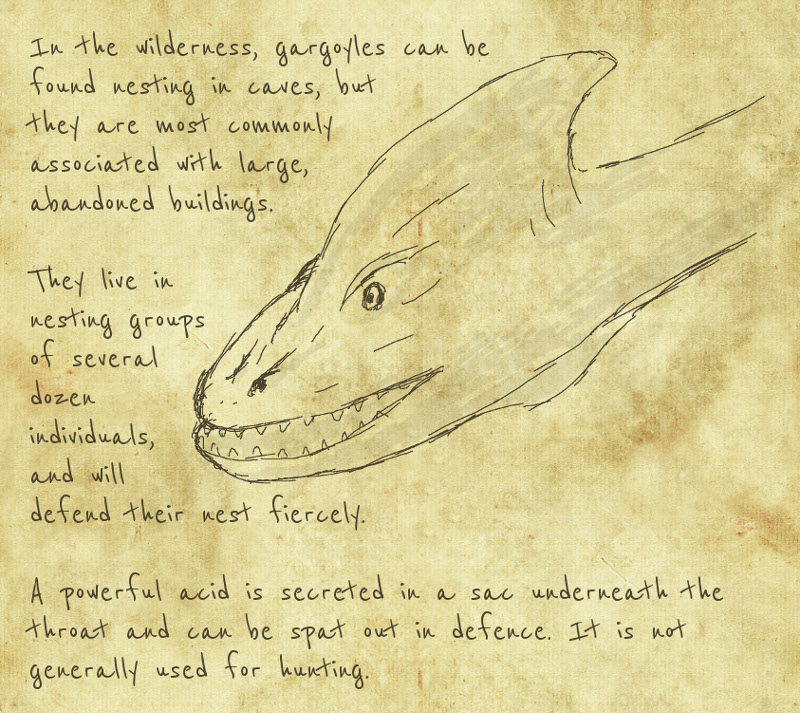 In the wilderness, gargoyles can be
found nesting in caves, but
they are most commonly
associated with large,
abandoned buildings.
They live in
nesting groups
of several
dozen
individuals,
and will
defend their nest fiercely.
A powerful acid is secreted in a sac underneath the
throat and can be spat out in defence. It is not
generally used for hunting.